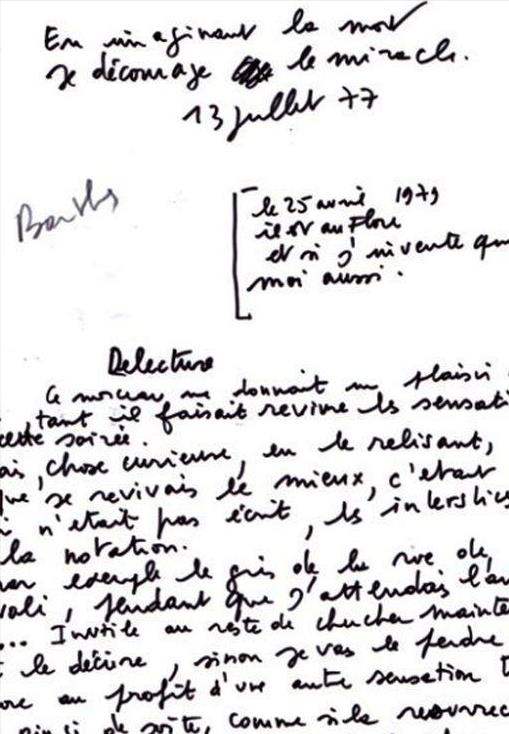 En imaginant la mort
je décourage le miracle.
13 juillet 77
Barthes
le 25 avril 1979
il est au Flore
et si j'invente que
moi aussi.
Relecture
Ce morceau me donnait un plaisir
tant il faisait revivre ls sensati
cette soirée.
ais, chose curieuse, en le relisant,
que je revivais le mieux, c'était
i n'était pas écrit, ls interstices
la notation.
par exemple le gris de la rue de
voli, pendant que j'attendais l'au
... Inutile au reste de chercher mainte
le décrire, sinon je vas le perdre
ore au profit d'une autre sensation
ainsi de suite, comme si la resurrec